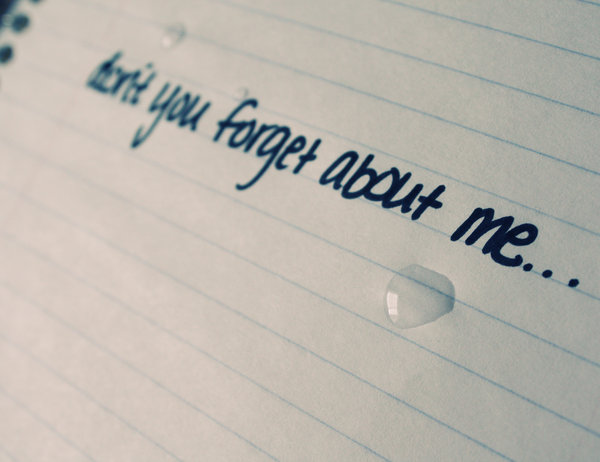 don't you forget about me...